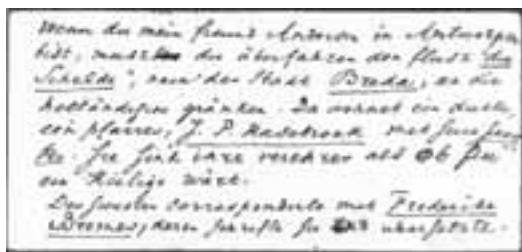 Wenn du mein freund Andersen in Antwerpen
bist, must du überfahren den fluss die
Schelde, nach der Stadt Breda, an die
holländischen gränken. Da wohnet ein
ein pfarrer, J. P. Hasebroek mit
Sie sind ihre verehrer als ob Sie
ein Heilige wäre.
correspondirte mit Frederike
Bremer, deren schrifte Sie übersetzte.